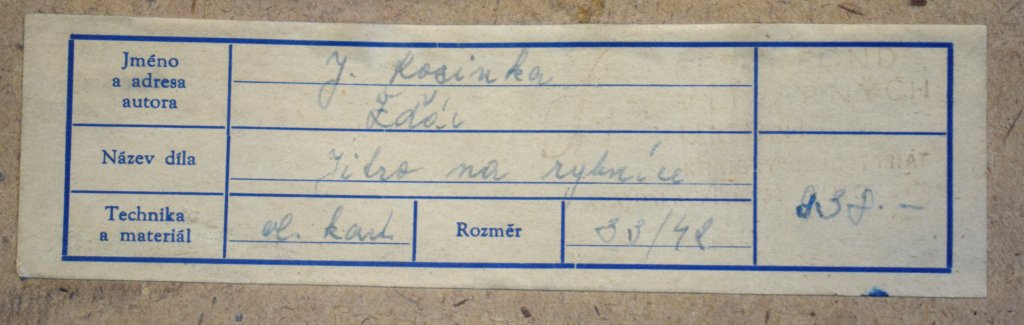 Jméno
a adresa
autora
J. Kosinka
Žďár
Název díla
Jitro na rybníce
Technika
a materiál
ol. kart.
Rozměr
33/42